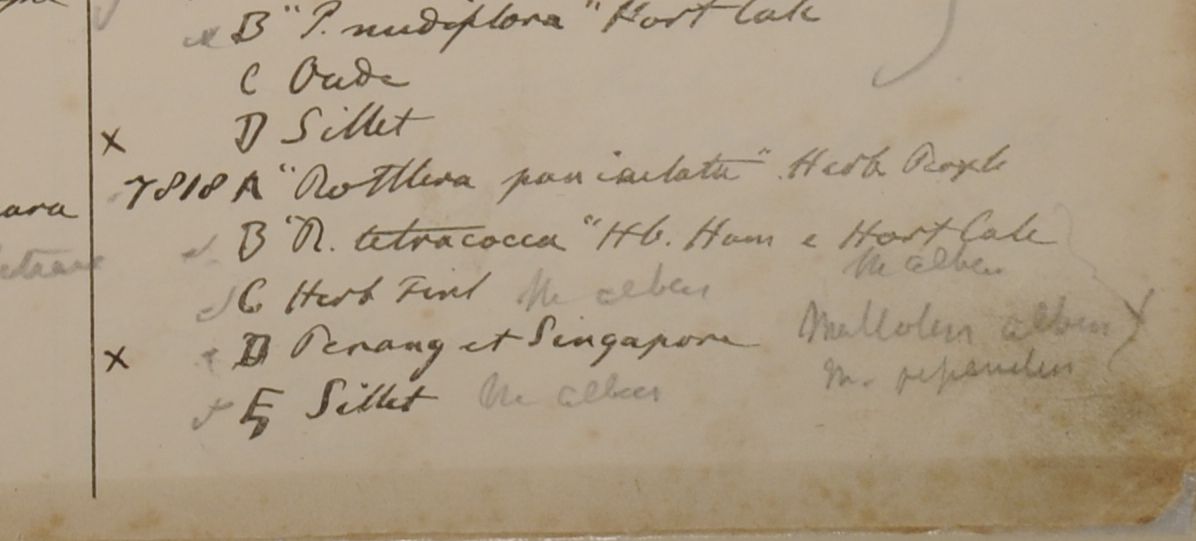 B "P. nudiflora" Hort Calc
C Oude
x D Sillet
7818 A "Rottlera paniculata" Herb Royle
ara
B "R. tetracocca" Hb. Ham e Hort Calc
M albus
C Herb Finl M albus
x D Penang et Singapore Mallotus albus
M. repandus
E Sillet M albus